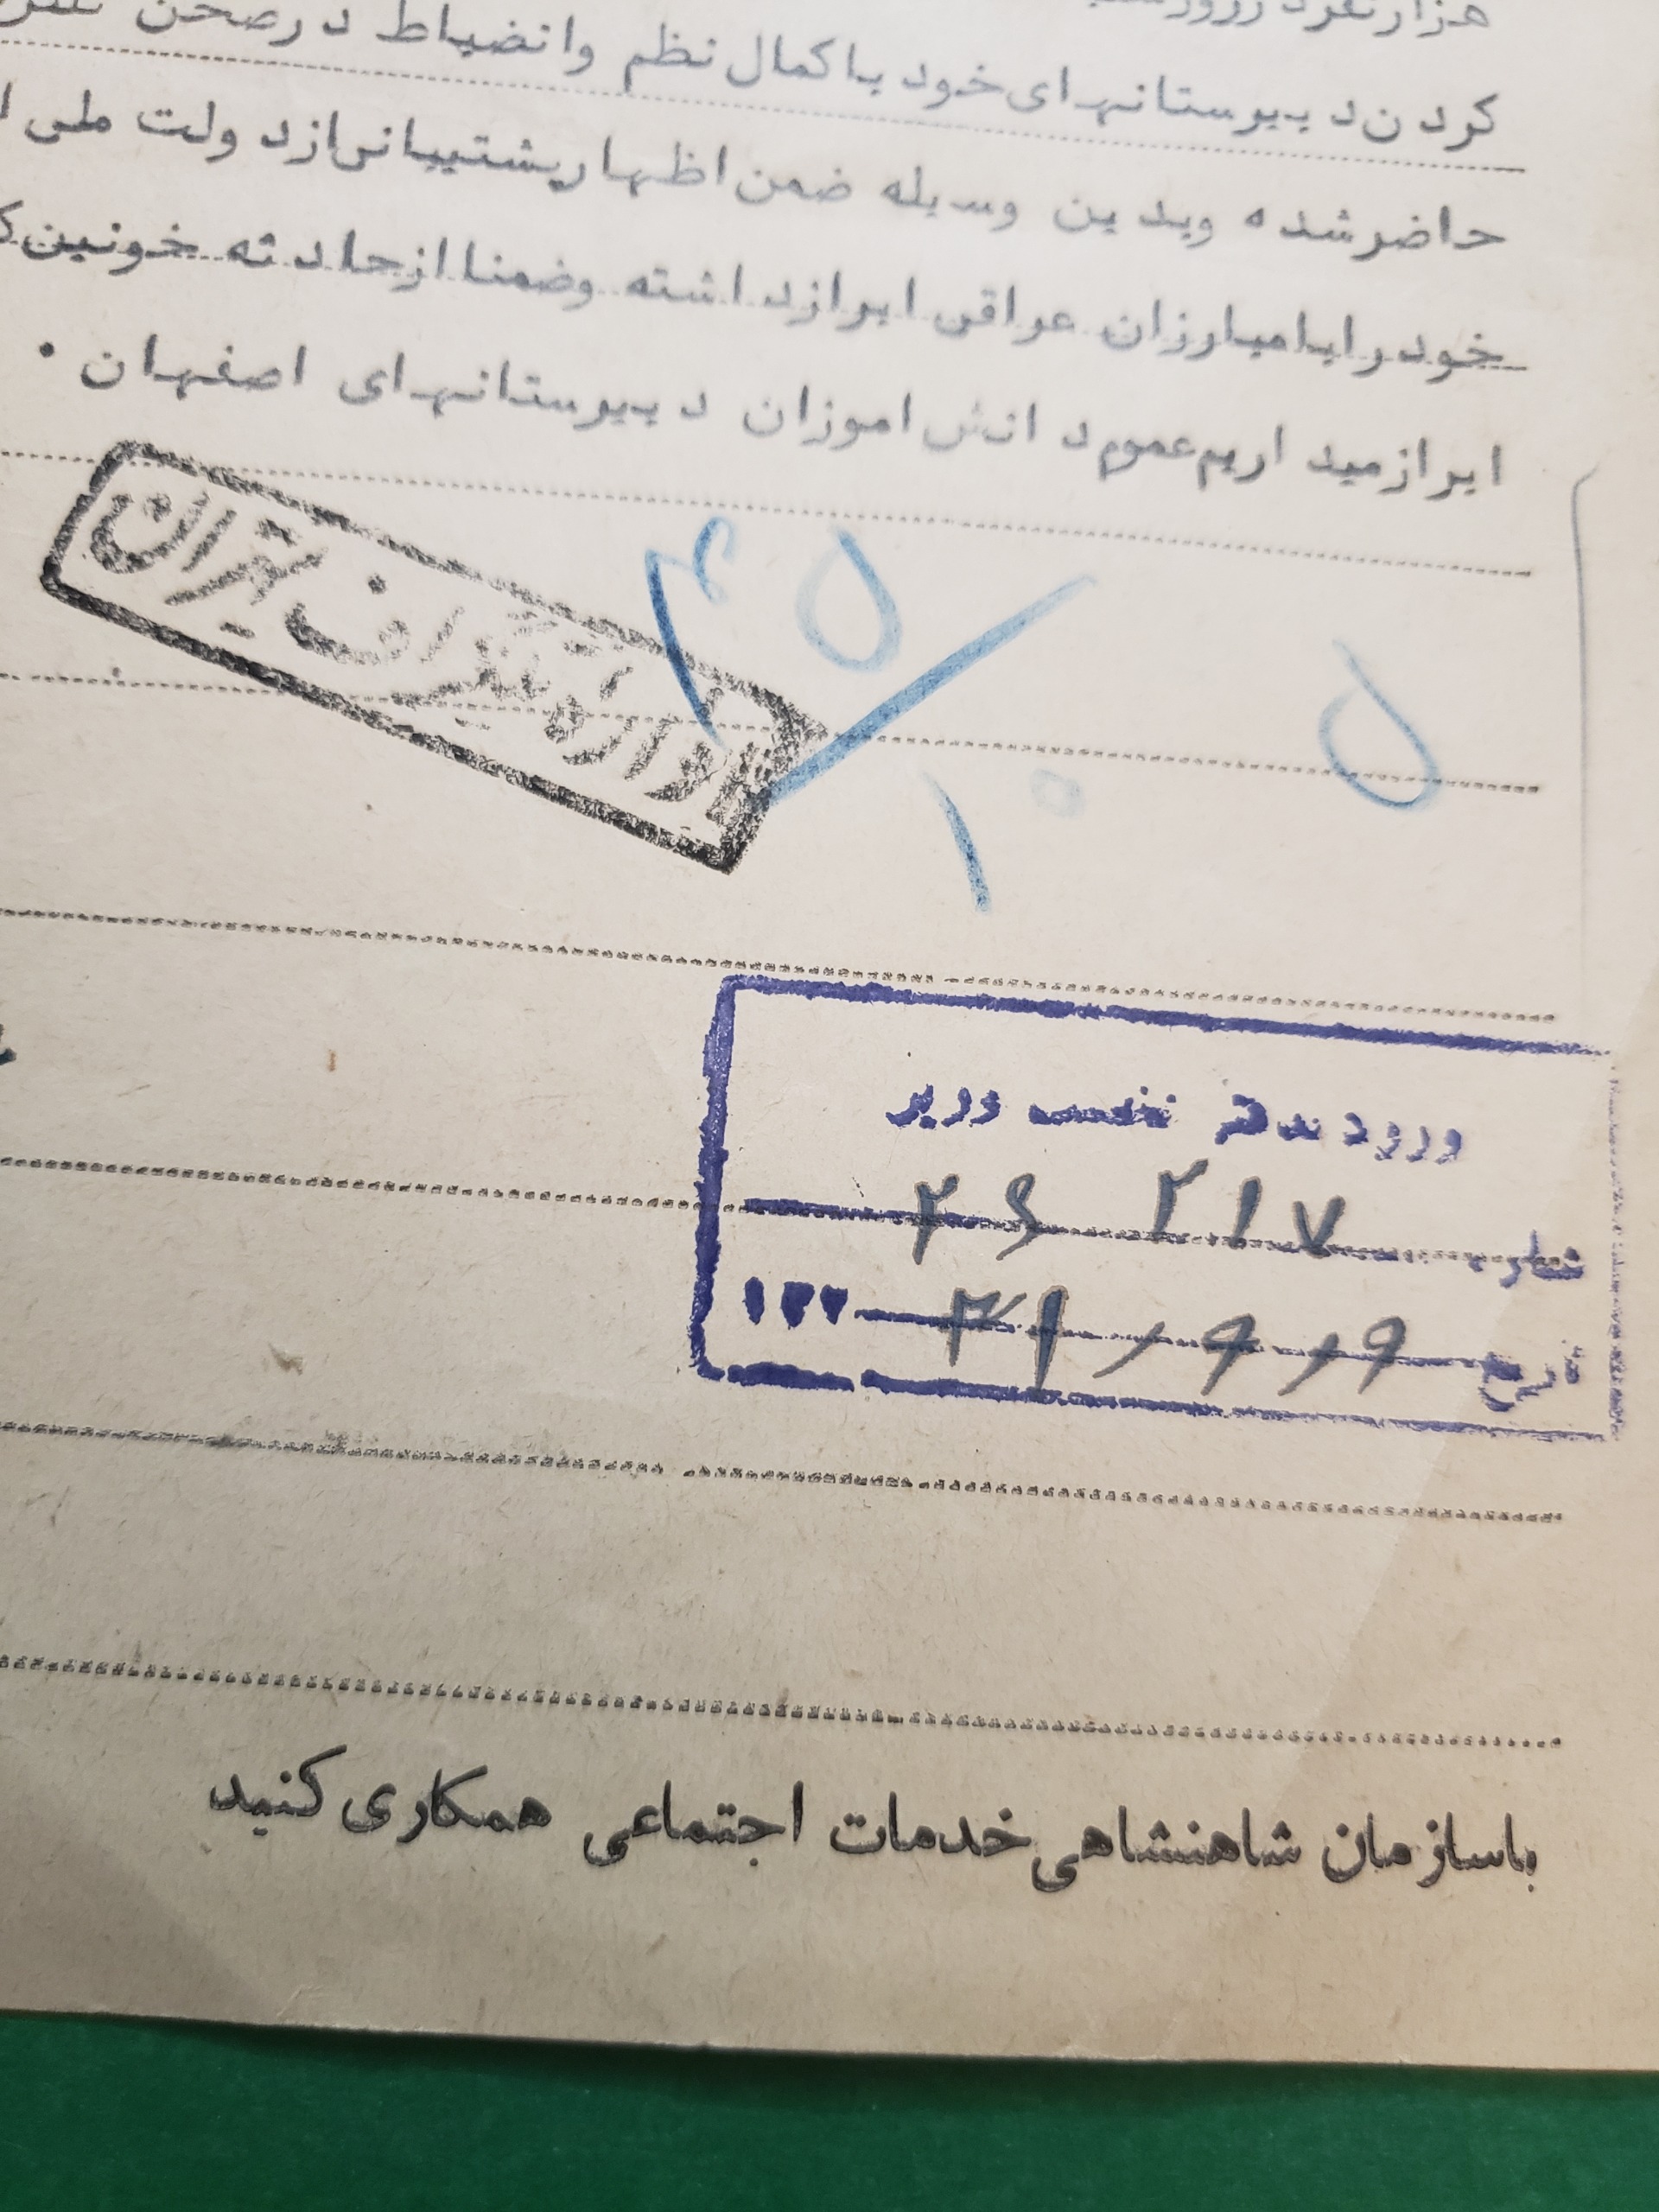 هزار نفر در روز
کردن دبیرستانهای خود با کمال نظم وانضباط در صحن
حاضر شده وبدین وسیله ضمن اظهار پشتیبانی از دولت ملی
خود را با مبارزان عراقی ابراز داشته وضمنا از حادثه خونین
ابراز میداریم عموم دانش اموزان دبیرستانهای اصفهان ٠
اداره تلگراف تهران
ورود بدفتر نخست وزیر
شماره ۲۶ ۲۱۷
تاریخ ۹ ر ۹ ر ۳۱ ۱۳۳
با سازمان شاهنشاهی خدمات اجتماعی همکاری کنید